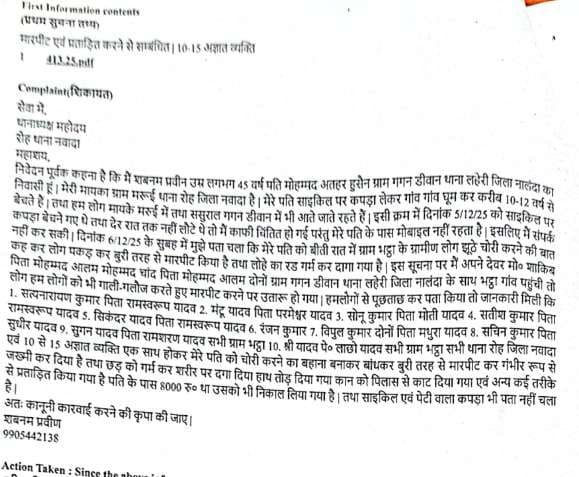 First Information contents
(प्रथम सूचना तथ्य)
मारपीट एवं प्रताड़ित करने से सम्बंधित | 10-15 अज्ञात व्यक्ति
1 413.25.pdf
Complaint(शिकायत)
सेवा में,
थानाध्यक्ष महोदय
रोह थाना नवादा
महाशय,
निवेदन पूर्वक कहना है कि मैं शबनम प्रवीन उम्र लगभग 45 वर्ष पति मोहम्मद अतहर हुसैन ग्राम गगन डीवान थाना लहेरी जिला नालंदा का
निवासी हूं | मेरी मायका ग्राम मरूई थाना रोह जिला नवादा है | मेरे पति साइकिल पर कपड़ा लेकर गांव गांव घूम कर करीब 10-12 वर्ष से
बेचते है | तथा हम लोग मायके मरुई में तथा ससुराल गगन डीवान में भी आते जाते रहते हैं | इसी क्रम में दिनांक 5/12/25 को साइकिल पर
कपड़ा बेचने गए थे तथा देर रात तक नहीं लौटे थे तो मैं काफी चिंतित हो गई परंतु मेरे पति के पास मोबाइल नहीं रहता है | इसलिए मैं संपर्क
नहीं कर सकी | दिनांक 6/12/25 के सुबह में मुझे पता चला कि मेरे पति को बीती रात में ग्राम भट्टा के ग्रामीण लोग झूठे चोरी करने की बात
कह कर लोग पकड़ कर बुरी तरह से मारपीट किया है तथा लोहे का रड गर्म कर दागा गया है | इस सूचना पर मैं अपने देवर मो० शाकिब
पिता मोहम्मद आलम मोहम्मद चांद पिता मोहम्मद आलम दोनों ग्राम गगन डीवान थाना लहेरी जिला नालंदा के साथ भट्टा गांव पहुंची तो
लोग हम लोगों को भी गाली-गलौज करते हुए मारपीट करने पर उतारू हो गया | हमलोगों से पूछताछ कर पता किया तो जानकारी मिली कि
1. सत्यनारायण कुमार पिता रामस्वरूप यादव 2. मंटू यादव पिता परमेश्वर यादव 3. सोनू कुमार पिता मोती यादव 4. सतीश कुमार पिता
रामस्वरूप यादव 5. सिकंदर यादव पिता रामस्वरूप यादव 6. रंजन कुमार 7. विपुल कुमार दोनों पिता मथुरा यादव 8. सचिन कुमार पिता
सुधीर यादव 9. सुगन यादव पिता रामशरण यादव सभी ग्राम भट्टा 10. श्री यादव पे० लाछो यादव सभी ग्राम भट्टा सभी थाना रोह जिला नवादा
एवं 10 से 15 अज्ञात व्यक्ति एक साथ होकर मेरे पति को चोरी करने का बहाना बनाकर बांधकर बुरी तरह से मारपीट कर गंभीर रूप से
जख्मी कर दिया है तथा छड़ को गर्म कर शरीर पर दगा दिया हाथ तोड़ दिया गया कान को पिलास से काट दिया गया एवं अन्य कई तरीके
से प्रताड़ित किया गया है पति के पास 8000 रु० था उसको भी निकाल लिया गया है | तथा साइकिल एवं पेटी वाला कपड़ा भी पता नहीं चला
है |
अतः कानूनी कारवाई करने की कृपा की जाए |
शबनम प्रवीण
9905442138
Action Taken : Since the above